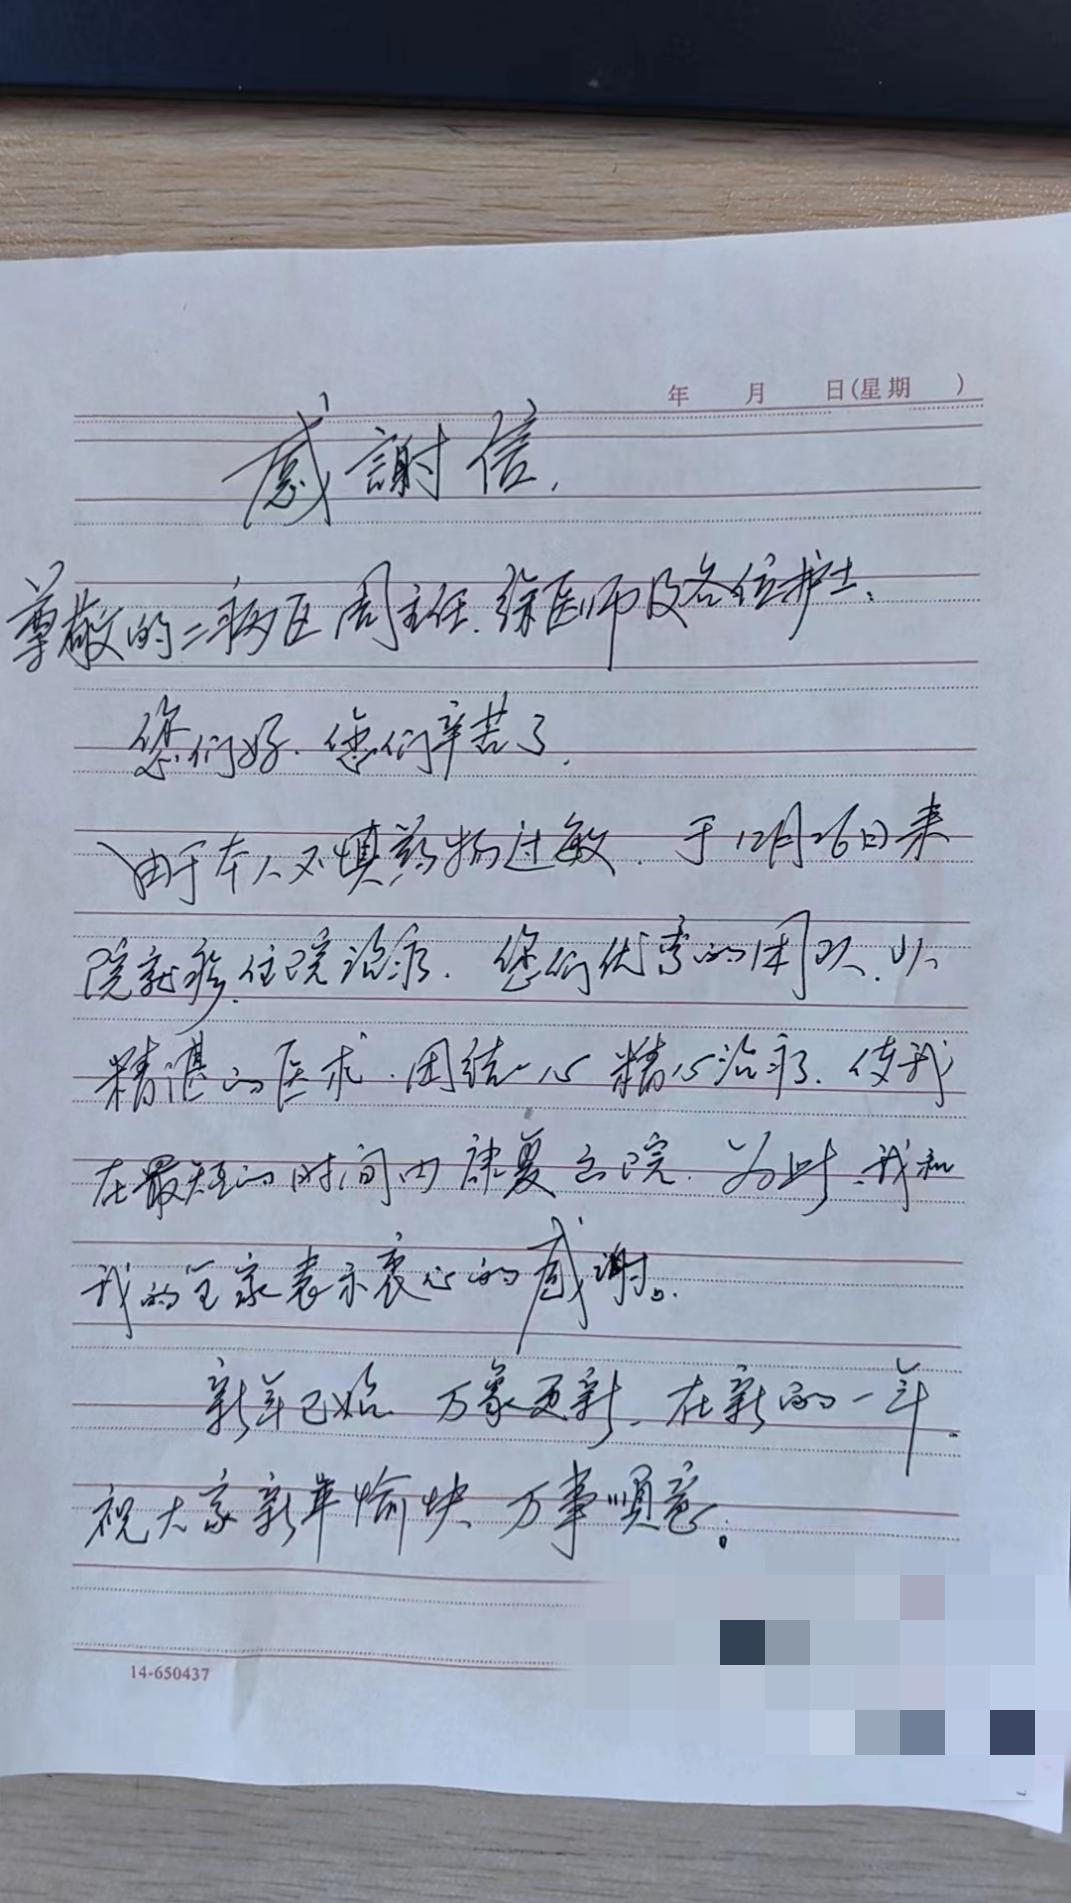 年 月 日(星期 )
感謝信.
尊敬的二病区周主任.徐医师及各位护士.
您们好.您们辛苦了.
由于本人不慎药物过敏.于12月26日来
院就诊.住院治疗.您们优秀的团队.以
精湛的医术.团结一心精心治疗.使我
在最短的时间内康复出院.为此.我和
我的全家表示衷心的感谢。
新年已始.万象更新.在新的一年.
祝大家新年愉快、万事顺意。
14-650437